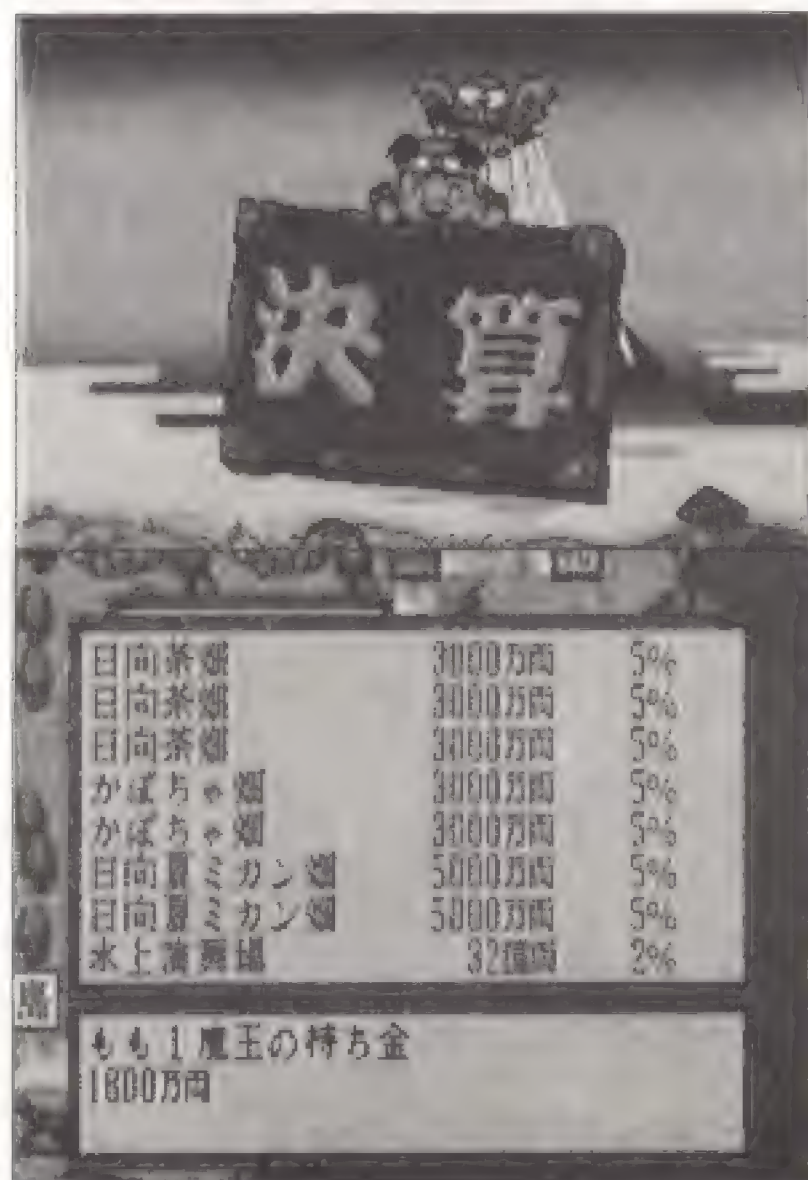 決算
日向茶畑 3000万両 5%
日向茶畑 3000万両 5%
日向茶畑 3000万両 5%
かぼちゃ畑 3000万両 5%
かぼちゃ畑 3000万両 5%
日向夏ミカン畑 5000万両 5%
日向夏ミカン畑 5000万両 5%
水上演芸場 32億両 2%
もも1魔王の持ち金
1800万両